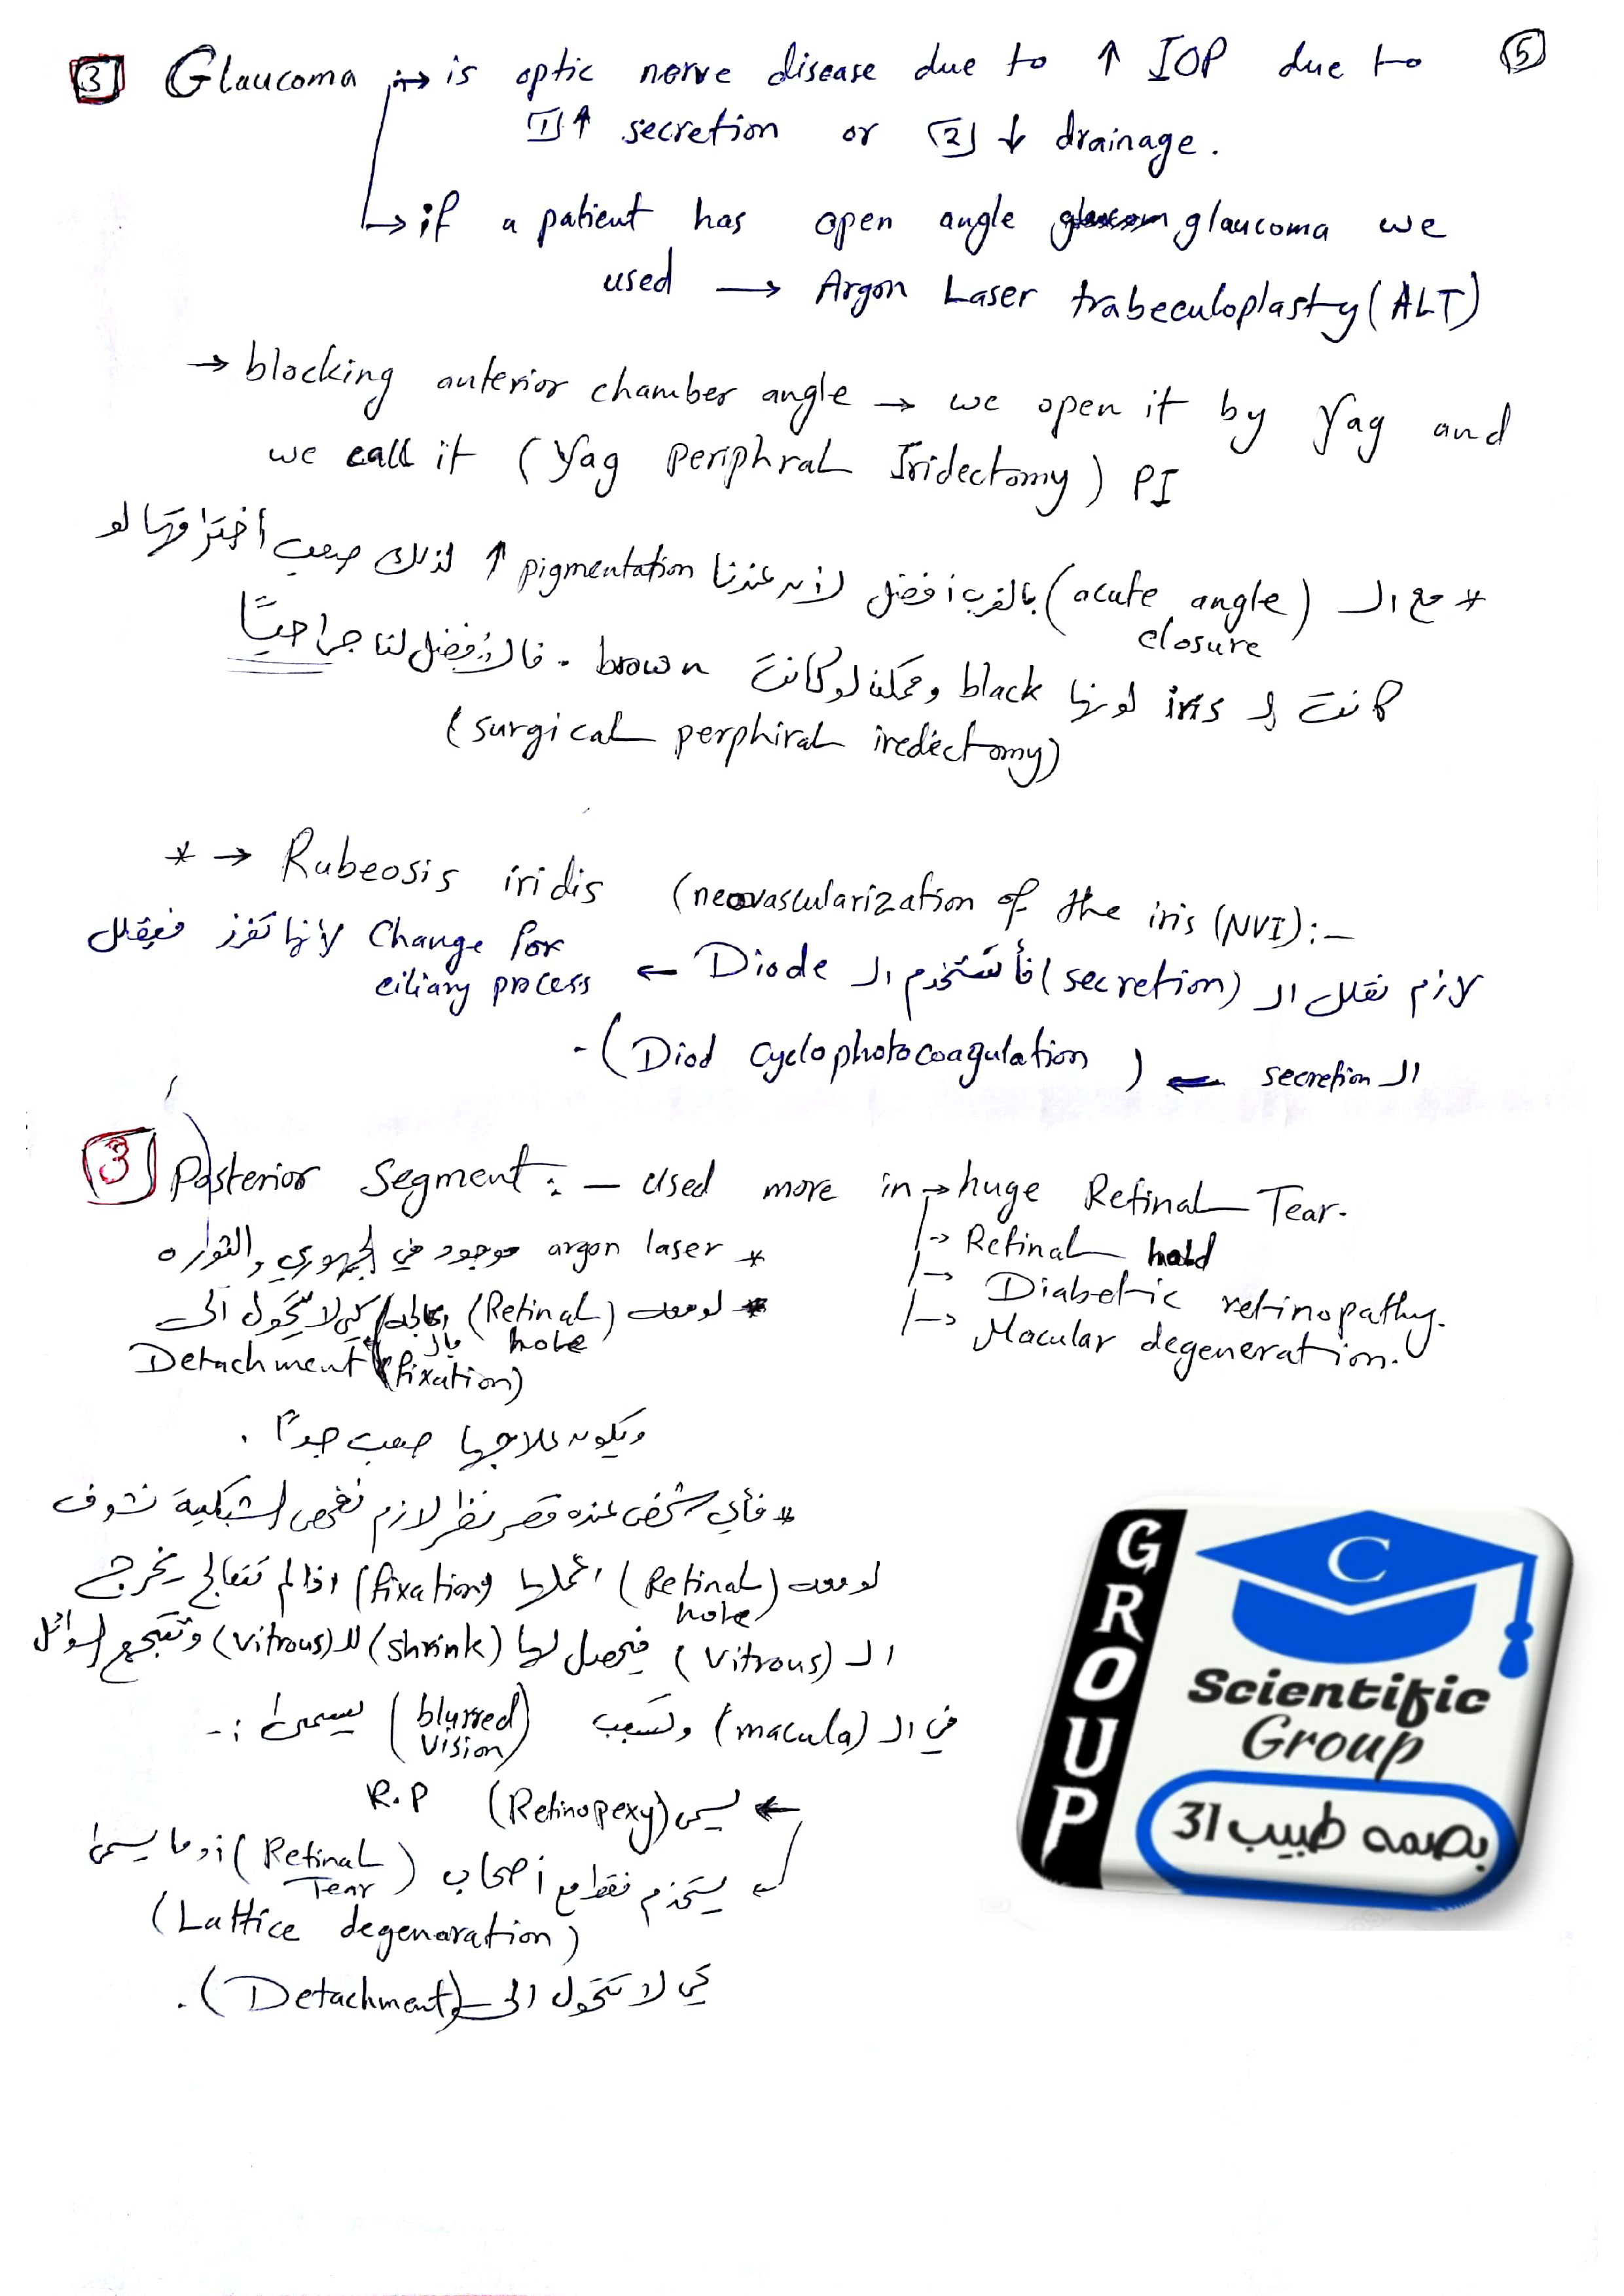 5
3 Glaucoma → is optic nerve disease due to ↑ IOP due to
1 ↑ secretion or 2 ↓ drainage.
→ if a patient has open angle glaucoma we
used → Argon Laser trabeculoplasty (ALT)
→ blocking anterior chamber angle → we open it by Yag and
we call it (Yag Periphral Iridectomy) PI
* مع الـ (acute angle closure) بالغرب أفضل لأنه عندنا pigmentation ↑ لذلك صعب أختراقها لو
كانت الـ iris لونها black وممكن لو كانت brown . فالأفضل لنا جراحيًا
(surgical perphiral iredectomy)
* → Rubeosis iridis (neovascularization of the iris (NVI) :-
لازم نقلل الـ (secretion) فأستخدم الـ Diode ← Change for ciliary process لأنها تفرز فيقلل
الـ secretion ← (Diod cyclophotocoagulation) .
3 Posterior Segment :- Used more in → huge Retinal Tear.
→ Retinal hold
→ Diabetic retinopathy.
→ Macular degeneration.
* argon laser موجود في الجمهوري والثوره
* لو معك (Retinal hole) بالـ (fixation) كي لا يتحول الى Detachment
ويكون علاجها صعب جداً .
* فأي شخص عنده قصر نظر لازم نفحص الشبكية نشوف
لو معه (Retinal hole) أعملها (fixation) اذا لم تتعالج يخرج
الـ (Vitrous) فيحصل لها (shrink) للـ (Vitrous) وتتجمع السوائل
في الـ (macula) وتسبب (blurred vision) يسمى :-
← يسمى (Retinopexy) R.P
يستخدم فقط مع أصحاب (Retinal Tear) أو ما يسمى
(Lattice degenaration)
كي لا تتحول الى (Detachment) .
GROUP
C
Scientific
Group
بصمه طبيب 31